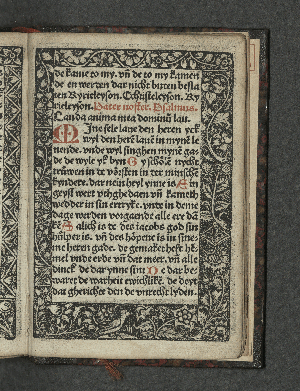 de kame to my. vñ de to my kamen
de en werden dar nicht buten besta
ten Kyrieleyson. Christeleyson. Ky
rieleyson. Pater noster. Psalmus.
Lauda anima mea dominū lau.
MJne sele laue den heren yck
wyl den herē lauē in mynē le
uende. vnde wyl singhen mynē ga
de de wyle yk byn Gy schölē nycht
trüwen in de vörsten in der minschē
kyndere. dar nein heyl ynne is Sin
geyst wert vthghedaen vñ kameth
wedder in sin ertryke. vnde in deme
dage werden vorgande alle ere dā
kē Salich is de des jacobs god sin
hülper is. vñ des höpene is in sine
me heren gade. de gemaket heft hē
mel vnde erde vñ dat meer. vñ alle
dinck de dar ynne sint De dar be
waret de warheit ewichlikē. de deyt
dat gherichte den de vnrecht lyden.